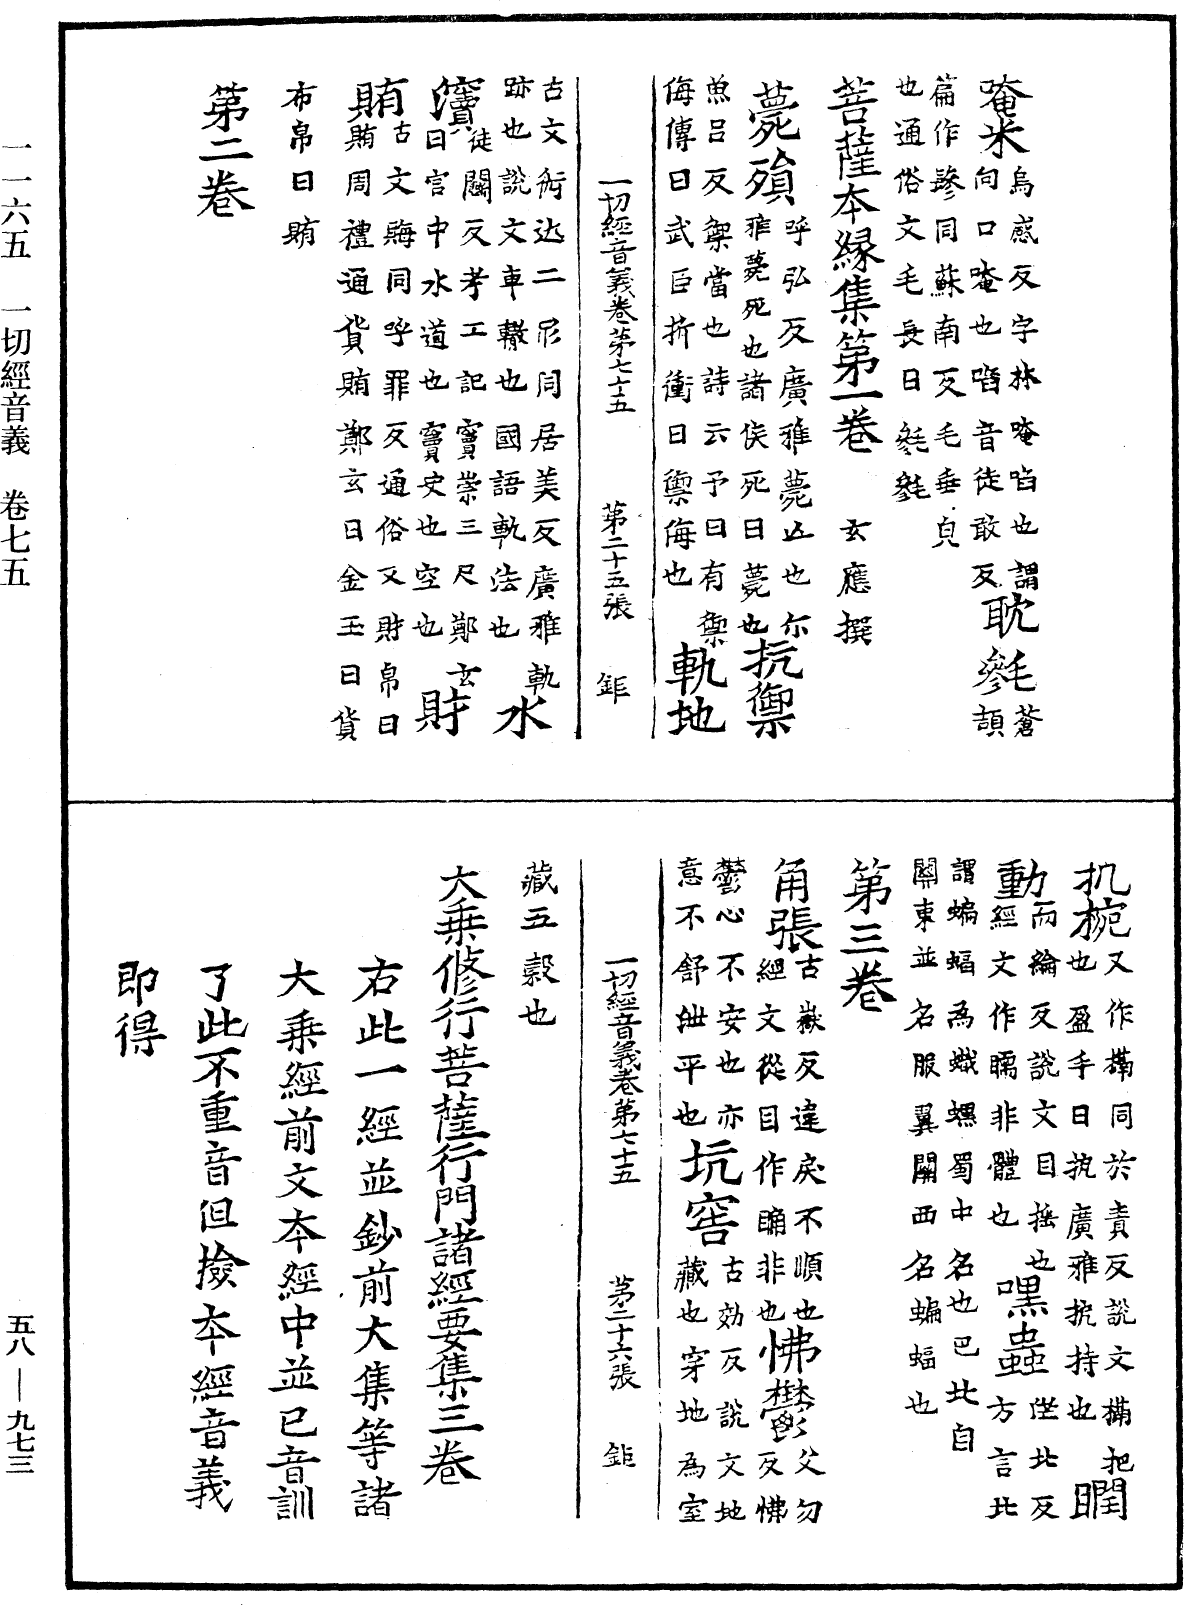 一一六五　一切經音義　卷七五
唵米烏感反字林唵啗也謂
向口唵也啗音徒敢反耽毿蒼頡
篇作鬖同蘇南反毛垂皃
也通俗文毛長曰毿毿
菩薩本緣集第一卷　玄應撰
薨殞呼弘反廣雅薨亡也尒
雅薨死也諸侯死曰薨也抗禦
魚呂反禦當也詩云予曰有禦
侮傳曰武臣折衝曰禦侮也軌地
一切經音義卷第七十五　第二十五張　鉅
古文術达二形同居美反廣雅軌
跡也說文車轍也國語軌法也水
瀆徒闘反考工記竇崇三尺鄭玄
曰言中水道也竇穴也空也財
賄古文賄同呼罪反通俗文財帛曰
賄周禮通貨賄鄭玄曰金玉曰貨
布帛曰賄
第二卷
扤椀又作㨖同於責反說文㨖把
也盈手曰扤廣雅扼持也瞤
動而綸反說文目搖也
經文作䁒非體也嘿蟲陞北反
方言北
謂蝙蝠為蟙䘃蜀中名也巴北自
關東並名服翼關西名蝙蝠也
第三卷
角張古嶽反違戾不順也
經文從目作䀶非也怫鬱父勿
反怫
鬱心不安也亦
意不舒泄平也坑窖古効反說文地
藏也穿地為室
一切經音義卷第七十五　第二十六張　鉅
藏五穀也
大乘修行菩薩行門諸經要集三卷
右此一經並鈔前大集等諸
大乘經前文本經中並已音訓
了此不重音但撿本經音義
即得
五八—九七三